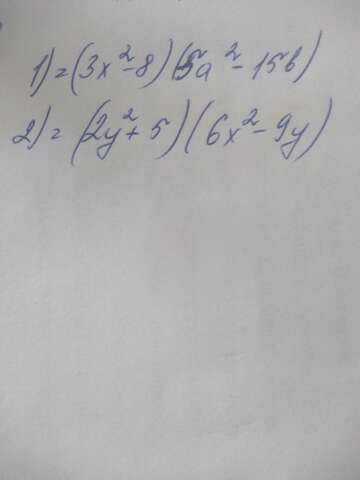 1) = (3x² - 8)(5a² - 15b)
2) = (2y² + 5)(6x² - 9y)